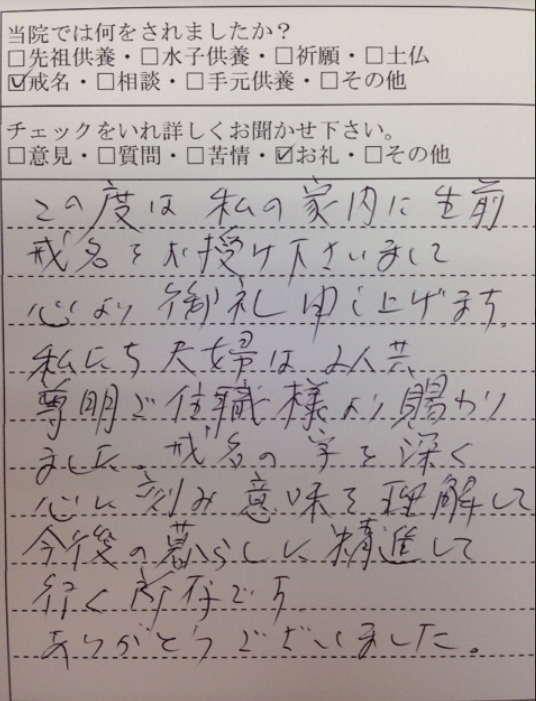 当院では何をされましたか？
□先祖供養・□水子供養・□祈願・□土仏
☑戒名・□相談・□手元供養・□その他
チェックをいれ詳しくお聞かせ下さい。
□意見・□質問・□苦情・☑お礼・□その他
この度は 私の家内に生前
戒名をお授け下さいまして
心より御礼申し上げます。
私たち夫婦は2人共
尊明ご住職様より賜わり
ました。戒名の字を深く
心に刻み意味を理解して
今後の暮らしに精進して
行く所存です
ありがとうございました。